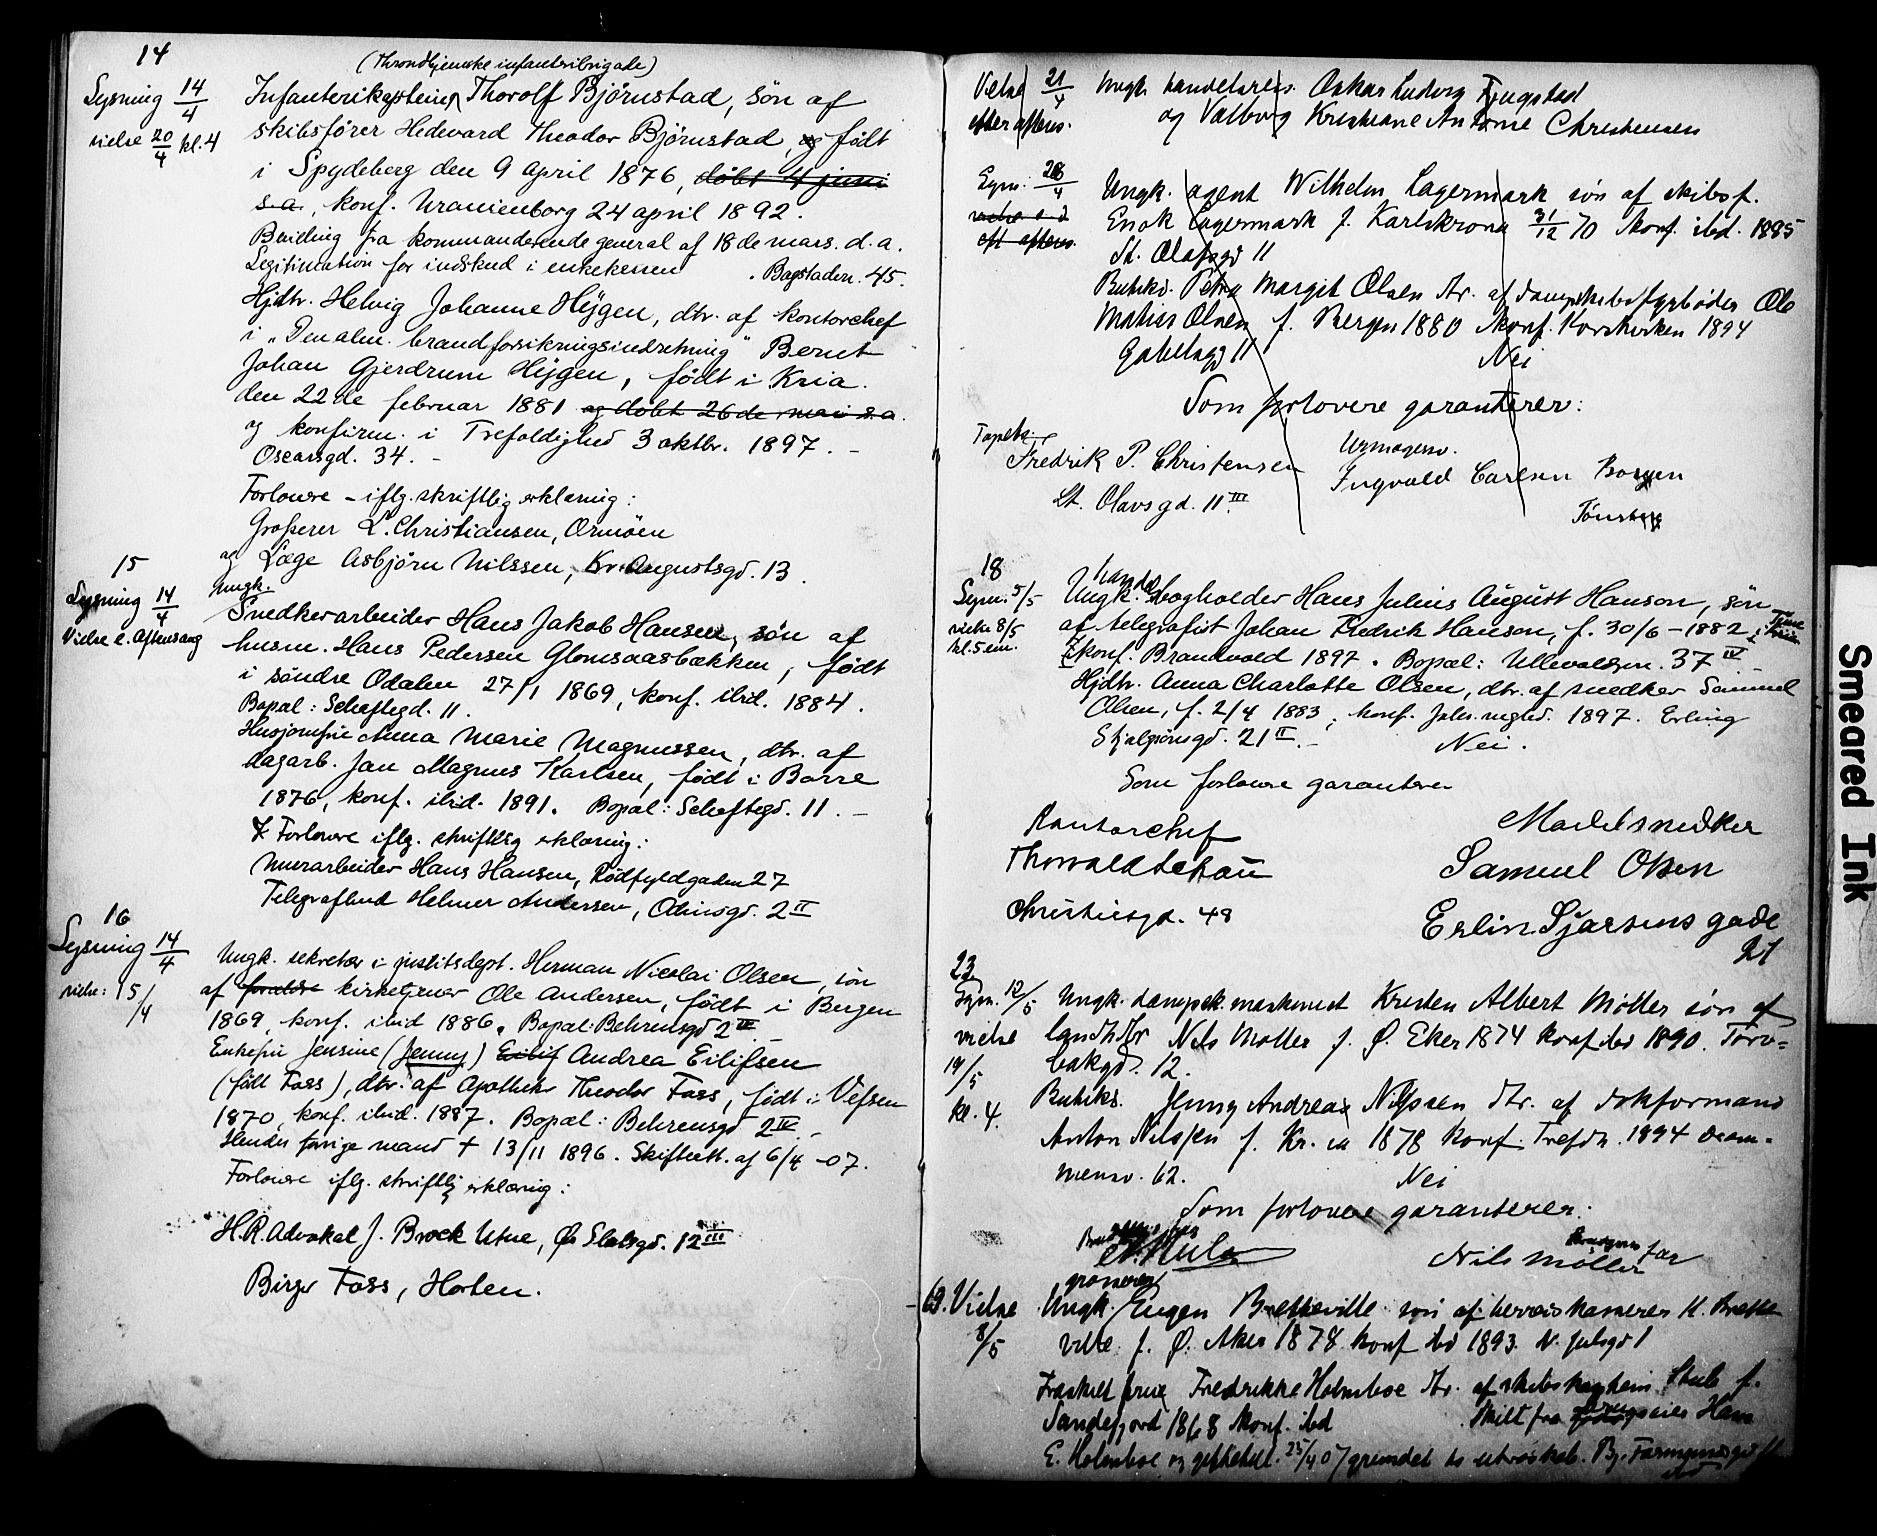 14
(Throndhjemske infanteribrigade)
Lysning 14/4
vielse 20/4 kl. 4
Infanterikaptein Thorolf Björnstad, sön af
skibsförer Hedevard Theodor Björnstad, og födt
i Spydeberg den 9 april 1876, döbt 4 juni
s.a., konf. Uranienborg 24 april 1892.
fra kommanderende general af 18de mars. d.a.
Legitimation for indskud i enkekassen. Bogstadvn. 45.
Hjdtr. Helvig Johanne Heÿgen, dtr. af kontorchef
i "Den alm. brandforsikringsindretning" Bernt
Johan Gjerdrum Heÿgen, födt i Kria.
den 22de februar 1881 og döbt 26de mai s.a.
og konfirm. i Trefoldighed 3 oktbr. 1897. -
Oscarsgd. 34. -
Forlovere - iflg. skriftlig erklæring:
Grosserer L. Christiansen, Ormöen
og Læge Asbjörn Nilssen, Kr. Augustsgd. 13.
15
Lysning 14/4
Vielse e. Aftensang
Ungk.
Snedkerarbeider Hans Jakob Hansen, sön af
husm. Hans Pedersen Glomsaasbakken, födt
i söndre Odalen 27/1 1869, konf. ibid. 1884.
Bopæl: Schaftegd. 11.
Husjomfru Anna Marie Magnussen, dtr. af
dagarb. Jan Magnus Karlsen, födt i Borre
1876, konf. ibid. 1891. Bopæl: Scheftegd. 11. -
Forlovere iflg. skriftlig erklæring:
Murarbeider Hans Hansen, Rödfyldgaden 27
Telegrafbud Helmer Andersen, Odinsgd. 2 II
16
Lysning 14/4
vielse: 15/4
Ungk. sekretær i justitsdept. Herman Nicolai Olsen, sön
af kirketjener Ole Andersen, födt i Bergen
1869, konf. ibid 1886. Bopæl: Behrensgd 2 IV
Enkefru Jensine (Jenny) Eilif Andrea Eilifsen
(födt Foss), dtr. af Apotheker Theodor Foss, födt i Vefsen
1870, konf. ibid. 1887. Bopæl: Behrensgd 2 IV. -
Hendes forrige mand + 13/11 1896. Skifteatt. af 6/4 -07.
Forlovere iflg. skriftlig erklæring:
H.R. Advokat J. Brock Utne, Øv Slotsgd. 12 III
Birger Foss, Horten.
Vielse 21/4
efter aftens.
Ungk. handelsreis. Oskar Ludvig
og Valborg Kristiane Antonie Christensen
Lysn. 28/4
vielse s d
eft aftens.
Ungk. agent Wilhelm Lagermark sön af skibsf.
Enok Lagermark f. Karlskrona 31/12 70 konf. ibd. 1885
St. Olafsgd 11
Butikd. Petra Margit Olsen dtr. af dampskibsfyrböder Ole
Matias Olsen f. Bergen 1880 konf. Korskirken 1894
Gabelsgd 11 Nei
Som forlovere garanterer:
Tapets.
Fredrik P. Christensen
St. Olavsgd. 11 III
Urmagersv.
Ingvald Carlsen Borgen
Tönsberg
18
Lysn. 5/5
vielse 8/5
kl. 5 em.
Ungk. handelsbogholder Hans Julius August Hanson, sön
af telegrafist Johan Fredrik Hanson, f. 30/6 - 1882 i
konf. Brandvold 1897. Bopæl: Ullevoldsvn. 37 IV -
Hjdtr. Anna Charlotte Olsen, dtr. af snedker Samuel
Olsen, f. 2/4 1883, konf. 1897. Erling
Skjalgsönsgd. 21 II. - Nei.
Som forlovere garanterer
Kontorchef
Thorvald Schau
Christiesgd. 48
Modelsnedker
Samuel Olsen
Erlin Sjarsens gade
21
23
Lysn. 12/5
vielse
19/5
kl. 4.
Ungk. dampsk. maskinist Kristen Albert Möller sön af
landhdlr Nils Möller f. Ø. Eker 1874 konf ibd 1890. Torv-
bakgd. 12.
Butiks. Jenny Andrea Nilssen dtr. af dokformand
Anton Nilssen f. Kr. ia 1878 konf. Trefdh. 1894 Dram-
mensv. 62. Nei
Som forlovere garanterer:
Nils Möller
Brudgoms far
Vielse
8/5
grosserer
Ungk. Eugen Bretteville sön af herredskasserer U. Brette
ville f. Ø. Aker 1878 konf ibd 1893. N. Julsgd 1
Fraskilt frue Fredrikke Holmboe dtr. af skibskaptein Stub f.
Sandefjord 1868 konf. ibd Skilt fra Hans
E. Holmboe 25/4 07 grundet